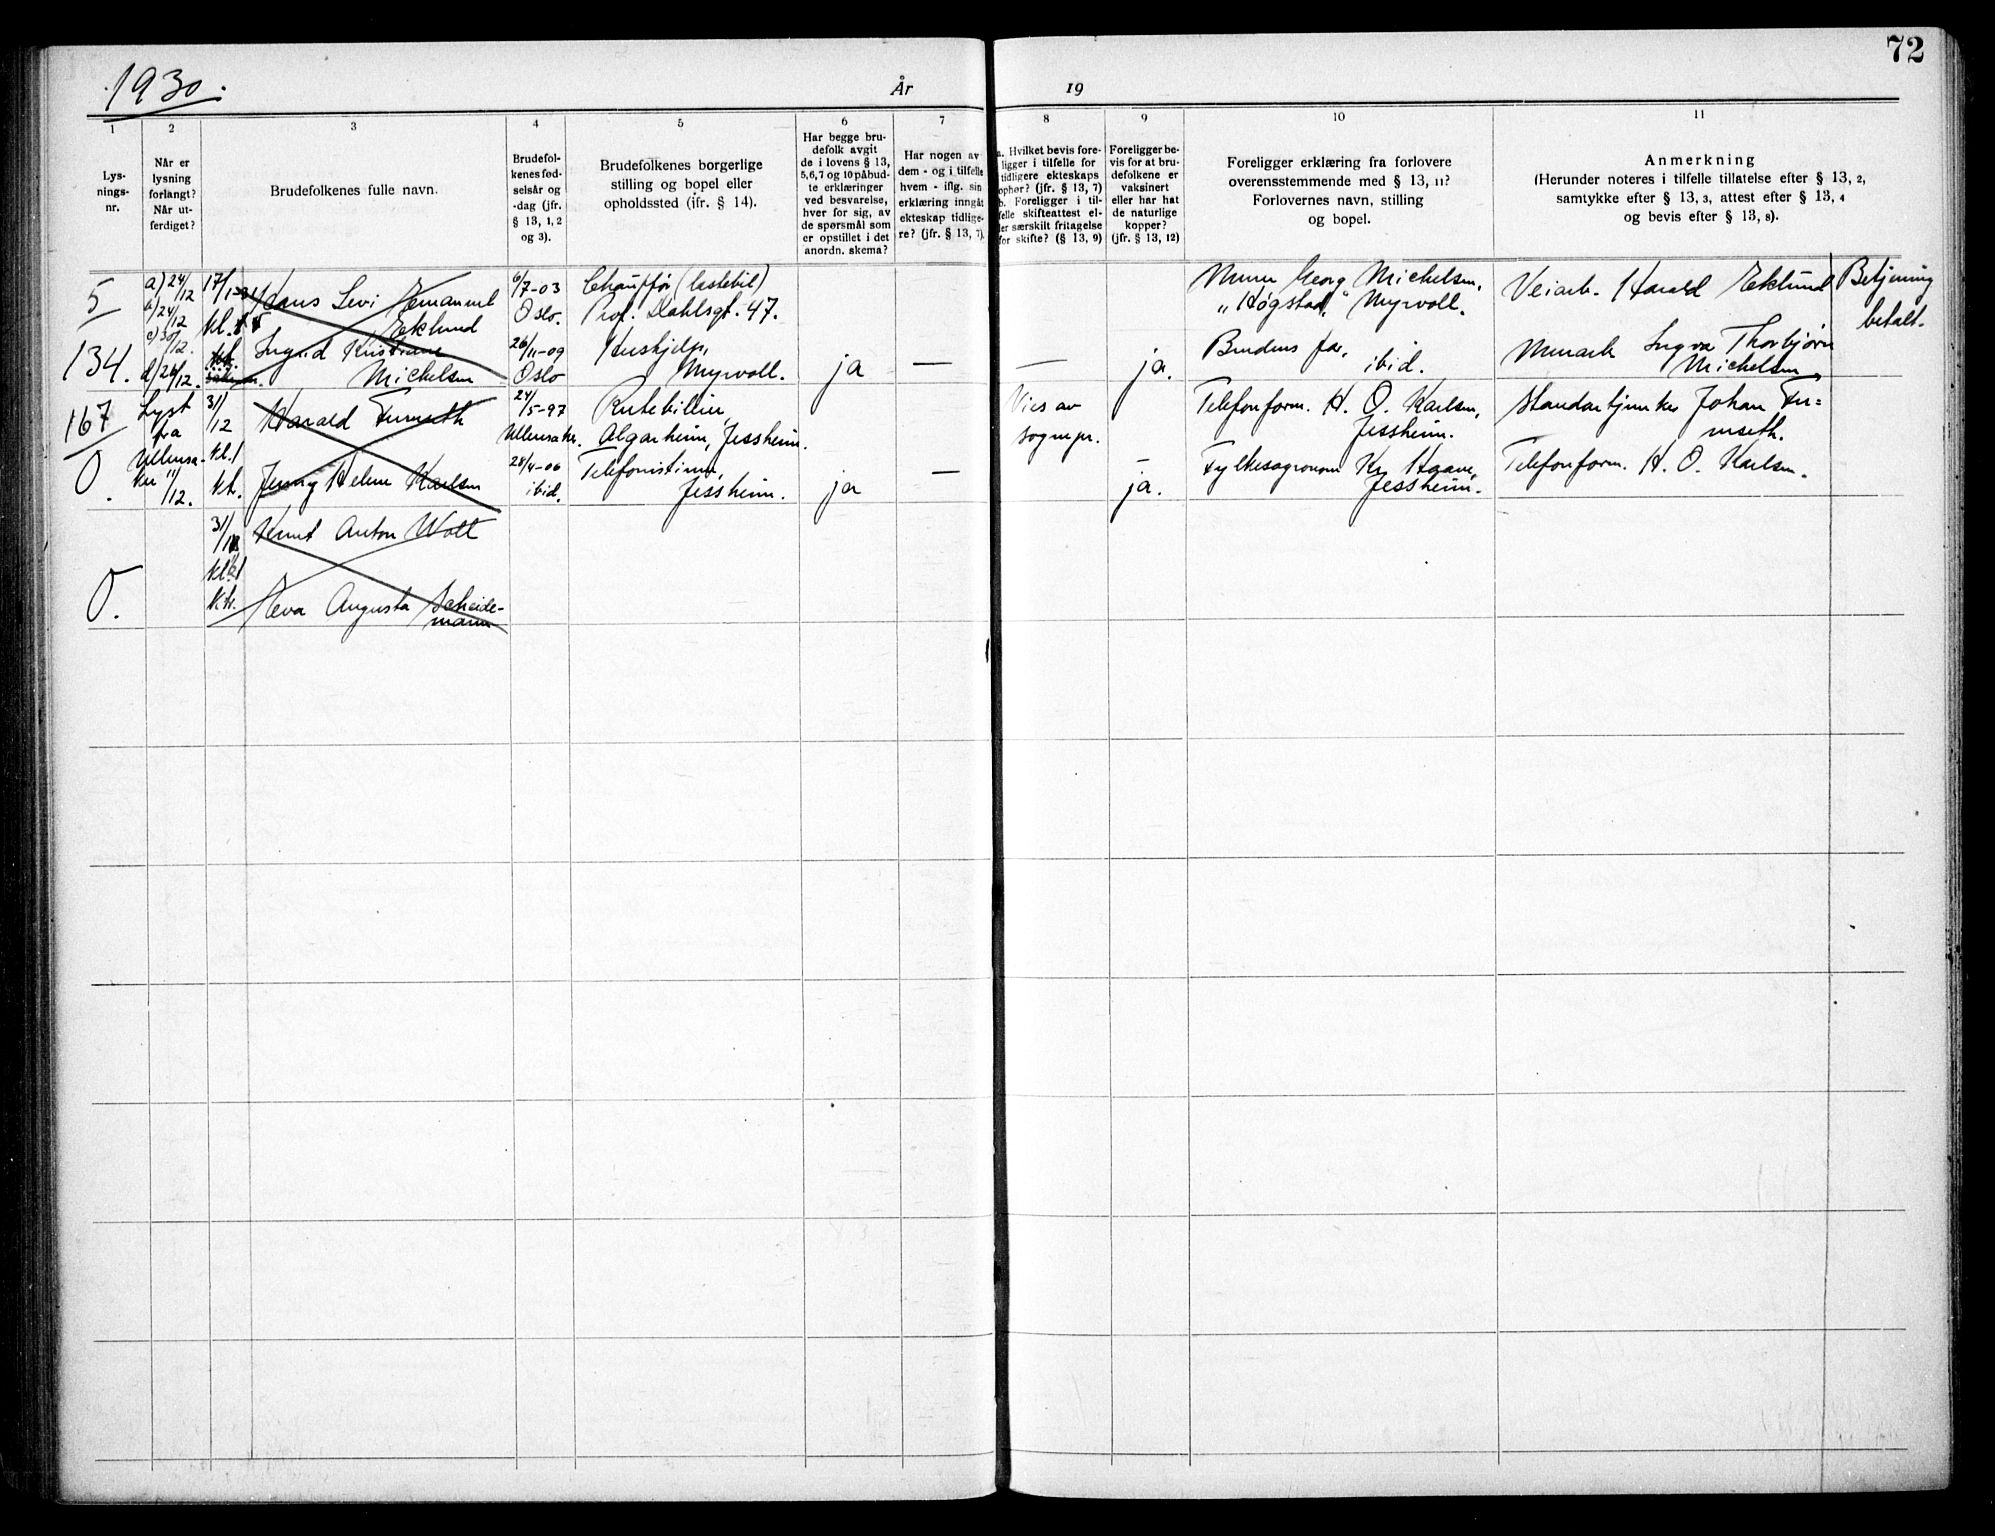 72
1930.
År
19
1
2
3
4
5
6
7
8
9
10
11
Lys-
nings-
nr.
Når er
lysning
forlangt?
Når ut-
ferdiget?
Brudefolkenes fulle navn.
Brudefol-
kenes fød-
selsår og
-dag (jfr.
§ 13, 1, 2
og 3).
Brudefolkenes borgerlige
stilling og bopel eller
opholdssted (jfr. § 14).
Har begge bru-
defolk avgit
de i lovens § 13,
5,6,7 og 10 påbud-
te erklæringer
ved besvarelse,
hver for sig, av
de spørsmål som
er opstillet i det
anordn. skema?
Har nogen av
dem - og i tilfelle
hvem - iflg. sin
erklæring inngåt
ekteskap tidlige-
re? (jfr. § 13, 7).
a. Hvilket bevis fore-
ligger i tilfelle for
tidligere ekteskaps
ophør? (jfr. § 13, 7)
b. Foreligger i til-
felle skifteattest el-
ler særskilt fritagelse
for skifte? (§ 13, 9)
Foreligger be-
vis for at bru-
defolkene er
vaksinert
eller har hat
de naturlige
kopper?
(jfr. § 13, 12)
Foreligger erklæring fra forlovere
overensstemmende med § 13, 11?
Forlovernes navn, stilling
og bopel.
Anmerkning
(Herunder noteres i tilfelle tillatelse efter § 13, 2,
samtykke efter § 13, 3, attest efter § 13, 4
og bevis efter § 13, 8).
5
134.
a) 24/12
b) 24/12
c) 30/12.
d) 26/12.
17/1-31
kl.
Hans Levi Emanuel
Eklund
Ingrid Kristiane
Michelsen
6/7-03
Oslo.
26/11-09
Oslo
Chauffør (lastebil)
Prof. Dahlsgt. 47.
Hushjelp,
Myrvoll.
ja
—
—
ja.
Murer Georg Michelsen,
"Høgstad," Myrvoll.
Brudens far,
ibid.
Veiarb. Harald Eklund
Murarb. Ingva Thorbjørn
Michelsen
Betjening
betalt.
167
0.
Lyst
fra
Ullensa-
ker 11/12.
31/12
kl. 1
kh.
Harald Furuseth
Jenny Helene Karlsen
24/5-97
Ullensaker.
28/4-06
ibid.
Rutebileier,
Algarheim, Jessheim.
Telefonistinne,
Jessheim.
ja
—
Vies av
sognepr.
—
ja.
Telefonform. H. O. Karlsen,
Jessheim.
Fylkesagronom Kr. Haave,
Jessheim.
Standartjunker Johan Fu=
ruseth.
Telefonform. H. O. Karlsen.
0.
31/12
kl.
kh.
Knut Anton Wolt
Eva Augusta Scheide-
mann